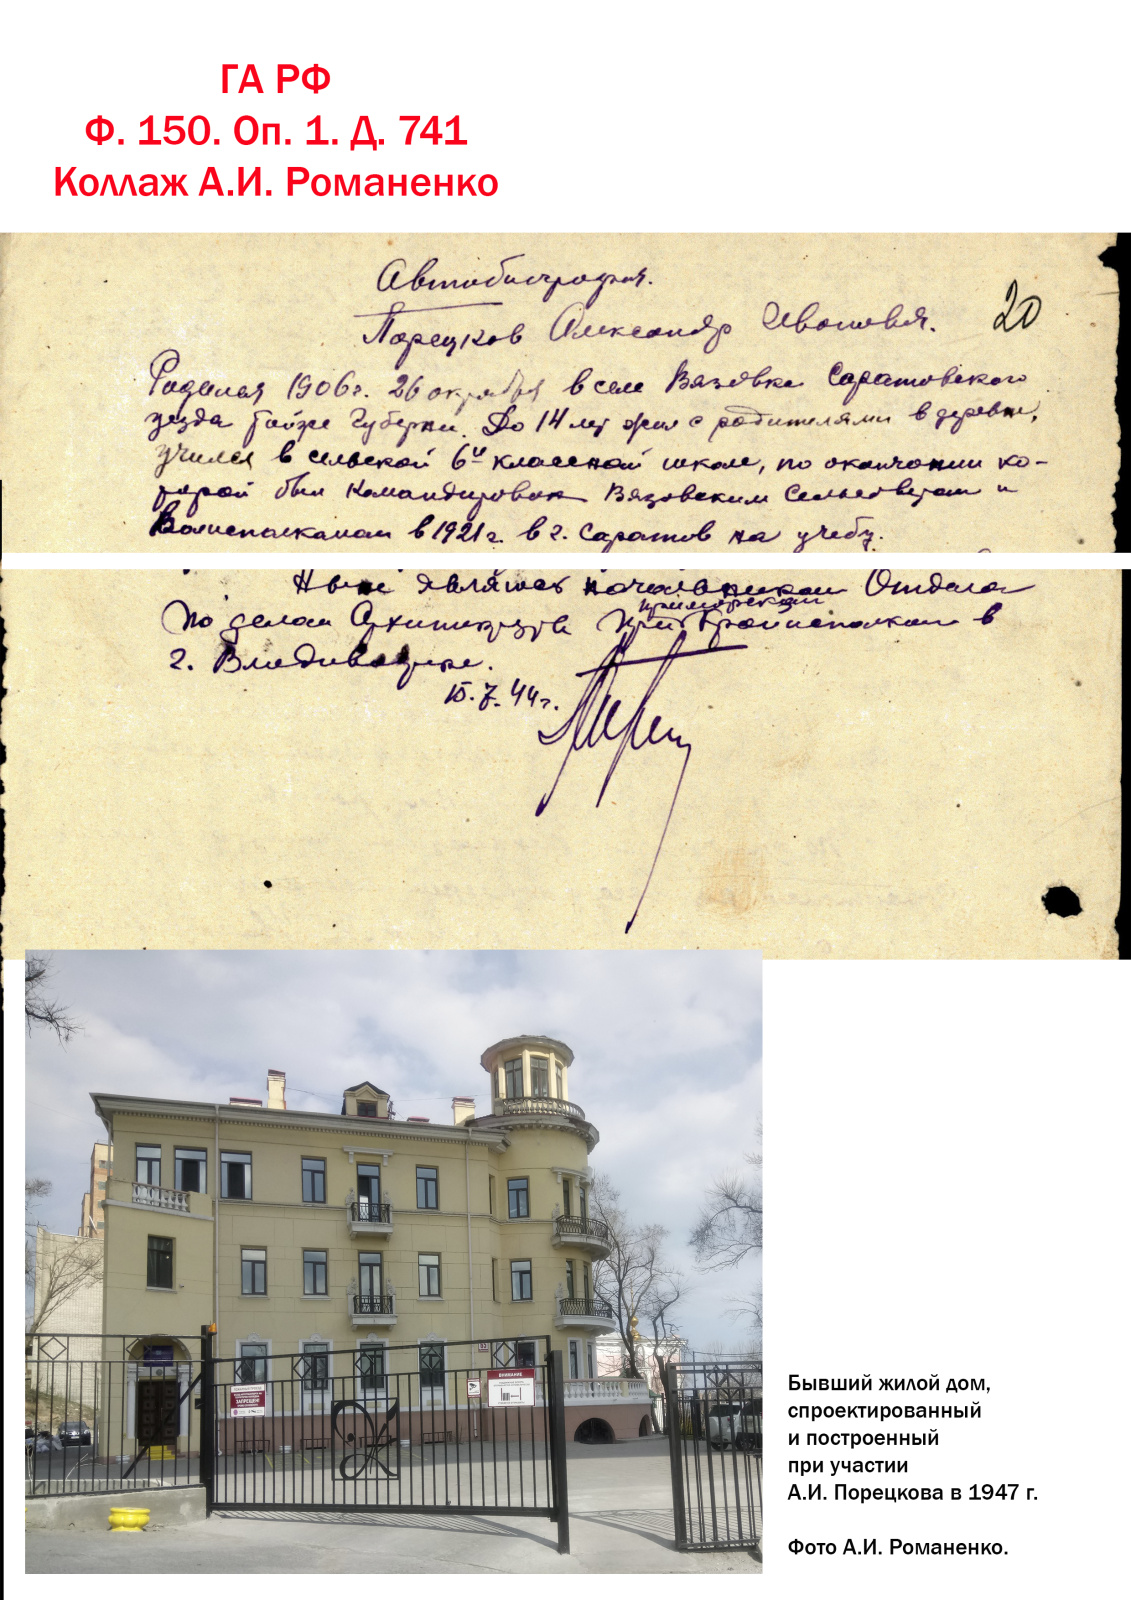 ГА РФ
Ф. 150. Оп. 1. Д. 741
Коллаж А.И. Романенко
Автобиография.
20
Порецков Александр Иванович.
Родился 1906 г. 26 октября в селе Вязовка Саратовского
уезда Губернии. До 14 лет жил с родителями в деревне,
учился в сельской 6и классной школе, по окончании ко-
торой был командирован Вязовским Сельсоветом и
Волисполкомом в 1921 г. в г. Саратов на учебу.
Ныне являюсь начальником Отдела
приморском
по делам Архитектуры при Крайисполкоме в
г. Владивостоке.
15.7.44 г.
ВНИМАНИЕ
ЗАПРЕЩЕН
Бывший жилой дом,
спроектированный
и построенный
при участии
А.И. Порецкова в 1947 г.
Фото А.И. Романенко.